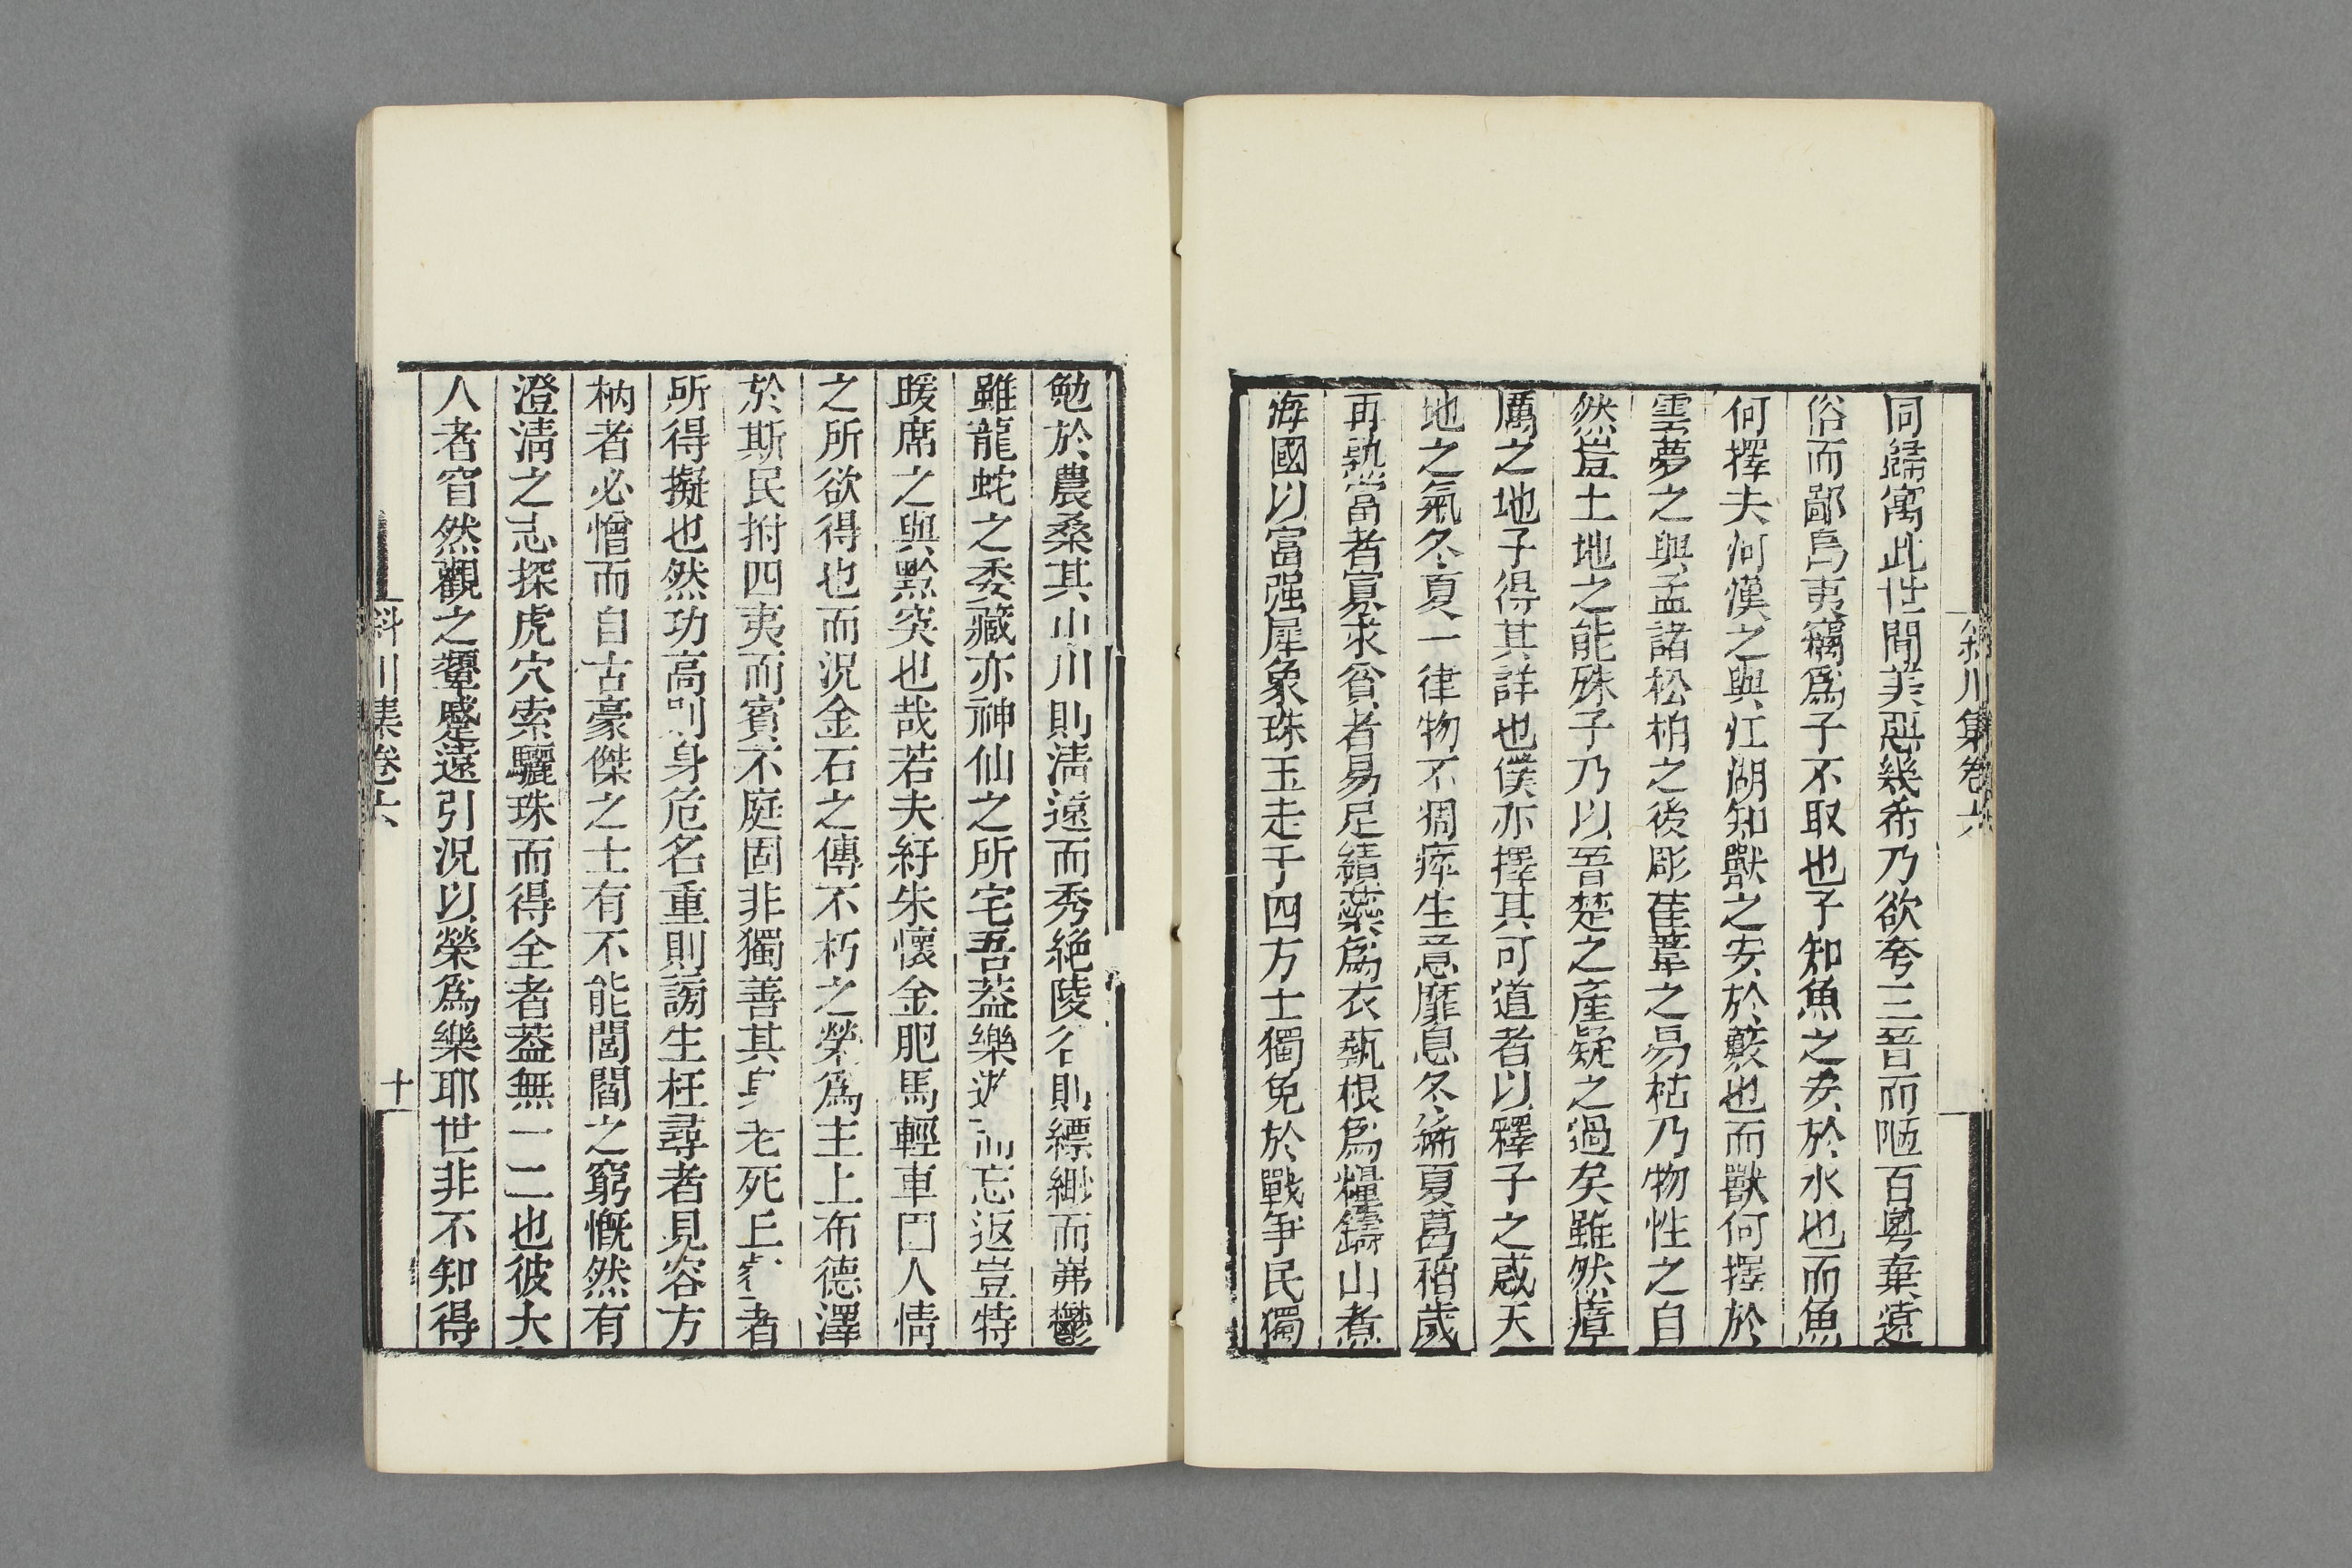 斜川集卷六
同歸寓此世間美惡幾希乃欲夸三晉而陋百粤棄遠
俗而鄙島夷竊爲子不取也子知魚之安於水也而魚
何擇夫河漢之與江湖知獸之安於藪也而獸何擇於
雲夢之與孟諸松柏之後彫萑葦之易枯乃物性之自
然豈土地之能殊子乃以晉楚之產疑之過矣雖然瘴
厲之地子得其詳也僕亦擇其可道者以釋子之惑天
地之氣冬夏一律物不凋瘁生意靡息冬絺夏葛稻歲
再熟富者寡求貧者易足績藥爲衣蓺根爲糧鑄山煮
海國以富强犀象珠玉走于四方士獨免於戰爭民獨
勉於農桑其山川則淸遠而秀絶陵谷則縹緲而茀鬱
雖龍蛇之委藏亦神仙之所宅吾葢樂遊而忘返豈特
暖席之與黔突也哉若夫紆朱懷金肥馬輕車固人情
之所欲得也而況金石之傳不朽之榮爲主上布德澤
於斯民拊四夷而賓不庭固非獨善其身老死丘壑者
所得擬也然功高則身危名重則謗生枉尋者見容方
枘者必憎而自古豪傑之士有不能閭閻之窮慨然有
澄淸之志探虎穴索驪珠而得全者葢無一二也彼大
人者窅然觀之顰蹙遠引況以榮爲樂耶世非不知得
斜川集卷六
十